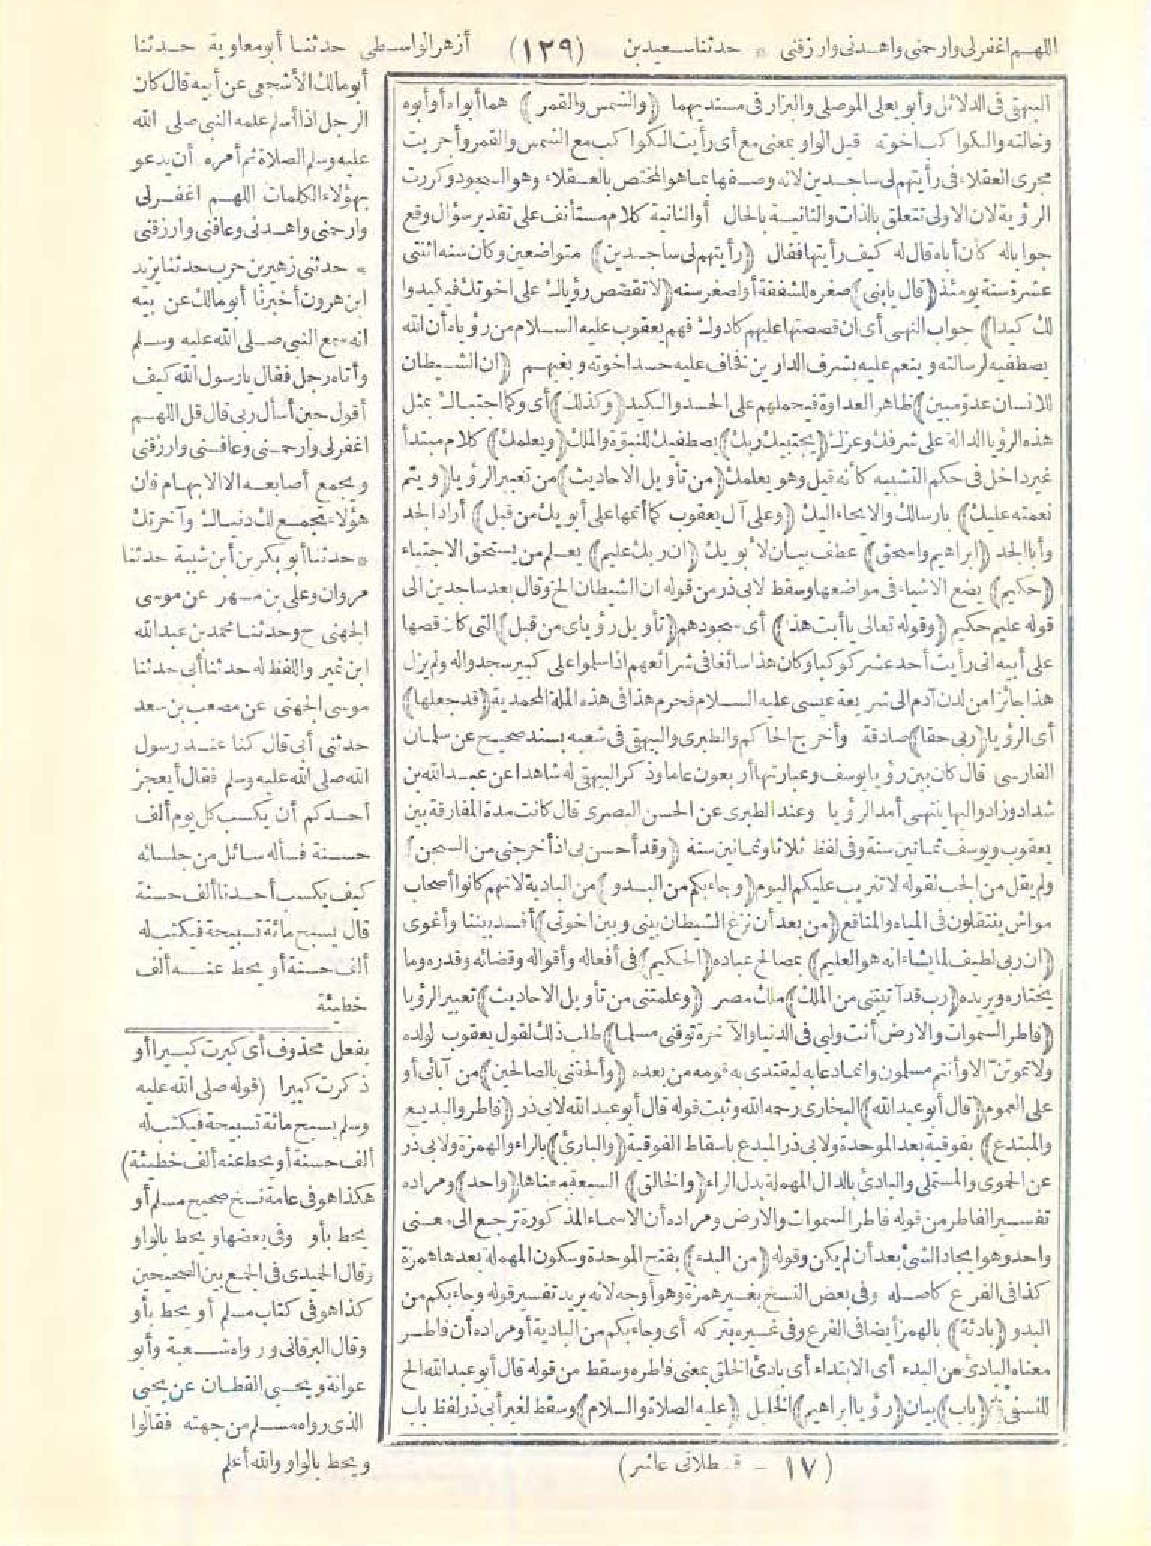 اللهم اغفر لى وارحمنى واهدنى وارزقنى * حدثنا سعيد بن (١٢٩) أزهر الواسطى حدثنا أبو معاوية حدثنا
البيهقى فى الدلائل وأبو يعلى الموصلى والبزار فى مسنديهما (والشمس والقمر) هما أبواه أو أبوه
وخالته والكواكب اخوته قيل الواو بمعنى مع أى رأيت الكواكب مع الشمس والقمر وأجريت
مجرى العقلاء فى رأيتهم لى ساجدين لانه وصفها بما هو المختص بالعقلاء وهو السجود وكررت
الرؤية لان الاولى تتعلق بالذات والثانية بالحال أو الثانية كلام مستأنف على تقدير سؤال وقع
جوابا له كأن أباه قال له كيف رأيتها فقال (رأيتهم لى ساجدين) متواضعين وكان سنه اثنتى
عشرة سنة يومئذ (قال يابنى) صغره للشفقة أو لصغر سنه (لا تقصص رؤياك على اخوتك فيكيدوا
لك كيدا) جواب النهى أى ان قصصتها عليهم كادوك فهم يعقوب عليه السلام من رؤياه أن الله
يصطفيه لرسالته وينعم عليه بشرف الدارين فخاف عليه حسد اخوته وبغيهم (ان الشيطان
للانسان عدو مبين) ظاهر العداوة فيحملهم على الحسد والكيد (وكذلك) أى وكما اجتباك بمثل
هذه الرؤيا الدالة على شرفك وعزك (يجتبيك ربك) يصطفيك للنبوة والملك (ويعلمك) كلام مبتدأ
غير داخل فى حكم التشبيه كأنه قيل وهو يعلمك (من تأويل الاحاديث) من تعبير الرؤيا (ويتم
نعمته عليك) بارسالك والايحاء اليك (وعلى آل يعقوب كما أتمها على أبويك من قبل) أراد الجد
وأبا الجد (ابراهيم واسحق) عطف بيان لأبويك (ان ربك عليم) يعلم من يستحق الاجتباء
(حكيم) يضع الاشياء فى مواضعها وسقط لابى ذر من قوله ان الشيطان الخ وقال بعد ساجدين الى
قوله عليم حكيم (وقوله تعالى ياأبت هذا) أى سجودهم (تأويل رؤياى من قبل) التى كان قصها
على أبيه انى رأيت أحد عشر كوكبا وكان هذا سائغا فى شرائعهم اذا سلموا على كبير سجدوا له ولم يزل
هذا جائزا من لدن آدم الى شريعة عيسى عليه السلام فحرم هذا فى هذه الملة المحمدية (قد جعلها)
أى الرؤيا (ربى حقا) صادقة وأخرج الحاكم والطبرى والبيهقى فى شعبه بسند صحيح عن سلمان
الفارسى قال كان بين رؤيا يوسف وعبارتها أربعون عاما وذكر البيهقى له شاهدا عن عبد الله بن
شداد وزاد واليها ينتهى أمد الرؤيا وعند الطبرى عن الحسن البصرى قال كانت مدة المفارقة بين
يعقوب ويوسف ثمانين سنة وفى لفظ ثلاثا وثمانين سنة (وقد أحسن بى اذ أخرجنى من السجن)
ولم يقل من الجب لقوله لا تثريب عليكم اليوم (وجاء بكم من البدو) من البادية لانهم كانوا أصحاب
مواش ينتقلون فى المياه والمناقع (من بعد أن نزغ الشيطان بينى وبين اخوتى) أفسد بيننا وأغوى
(ان ربى لطيف لما يشاء انه هو العليم) بمصالح عباده (الحكيم) فى أفعاله وأقواله وقضائه وقدره وما
يختاره ويريده (رب قد آتيتنى من الملك) ملك مصر (وعلمتنى من تأويل الاحاديث) تعبير الرؤيا
(فاطر السموات والارض أنت وليى فى الدنيا والآخرة توفنى مسلما) طلب ذلك لقول يعقوب لولده
ولا تموتن الا وأنتم مسلمون وانما دعا به ليقتدى به قومه من بعده (وألحقنى بالصالحين) من آبائى أو
على العموم (قال أبو عبد الله) البخارى رحمه الله وثبت قوله قال أبو عبد الله لابى ذر (فاطر والبديع
والمبتدع) بفوقية بعد الموحدة ولابى ذر المبدع باسقاط الفوقية (والبارئ) بالراء والهمزة ولابى ذر
عن الحموى والمستملى والبادئ بالدال المهملة بدل الراء (والخالق) السبعة معناها (واحد) ومراده
تفسير الفاطر من قوله فاطر السموات والارض ومراده أن الاسماء المذكورة ترجع الى معنى
واحد وهو ايجاد الشئ بعد أن لم يكن وقوله (من البدء) بفتح الموحدة وسكون المهملة بعدها همزة
كذا فى الفرع كاصله وفى بعض النسخ بغير همزة وهو أوجه لانه يريد تفسير قوله وجاء بكم من
البدو (بادئة) بالهمز أيضا فى الفرع وفى غيره بتركه أى وجاء بكم من البادية أو مراده أن فاطر
معناه البادئ من البدء أى الابتداء أى بادئ الخلق بمعنى فاطره وسقط من قوله قال أبو عبد الله الخ
للنسفى * (باب) بيان (رؤيا ابراهيم) الخليل (عليه الصلاة والسلام) وسقط لغير أبى ذر لفظ باب
(١٧ - قسطلانى عاشر)
أبو مالك الأشجعى عن أبيه قال كان
الرجل اذا أسلم علمه النبى صلى الله
عليه وسلم الصلاة ثم أمره أن يدعو
بهؤلاء الكلمات اللهم اغفر لى
وارحمنى واهدنى وعافنى وارزقنى
* حدثنى زهير بن حرب حدثنا يزيد
ابن هرون أخبرنا أبو مالك عن أبيه
انه سمع النبى صلى الله عليه وسلم
وأتاه رجل فقال يارسول الله كيف
أقول حين أسأل ربى قال قل اللهم
اغفر لى وارحمنى وعافنى وارزقنى
ويجمع أصابعه الا الابهام فان
هؤلاء تجمع لك دنياك وآخرتك
* حدثنا أبو بكر بن أبى شيبة حدثنا
مروان وعلى بن مسهر عن موسى
الجهنى ح وحدثنا محمد بن عبد الله
ابن نمير واللفظ له حدثنا أبى حدثنا
موسى الجهنى عن مصعب بن سعد
حدثنى أبى قال كنا عند رسول
الله صلى الله عليه وسلم فقال أيعجز
أحدكم أن يكسب كل يوم ألف
حسنة فسأله سائل من جلسائه
كيف يكسب أحدنا ألف حسنة
قال يسبح مائة تسبيحة فيكتب له
ألف حسنة أو يحط عنه ألف
خطيئة
بفعل محذوف أى كبرت كبيرا أو
ذكرت كبيرا (قوله صلى الله عليه
وسلم يسبح مائة تسبيحة فيكتب له
ألف حسنة أو يحط عنه ألف خطيئة)
هكذا هو فى عامة نسخ صحيح مسلم أو
يحط بأو وفى بعضها ويحط بالواو
وقال الحميدى فى الجمع بين الصحيحين
كذا هو فى كتاب مسلم أو يحط بأو
وقال البرقانى ورواه شعبة وأبو
عوانة ويحيى القطان عن يحيى
الذى رواه مسلم من جهته فقالوا
ويحط بالواو والله أعلم